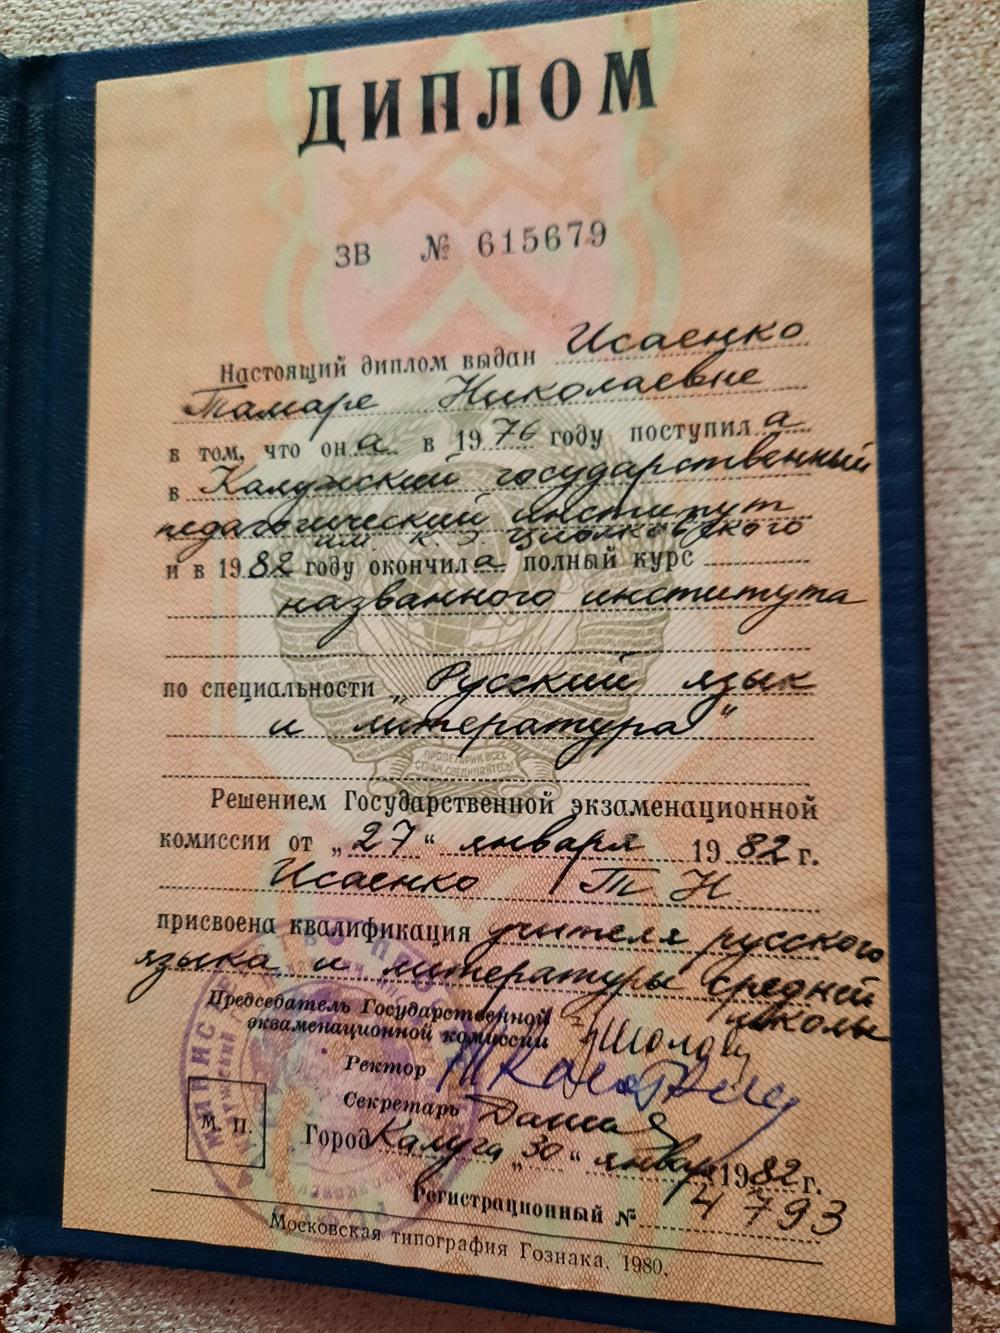 ДИПЛОМ
ЗВ № 615679
Настоящий диплом выдан Исаенко
Тамаре Николаевне
в том, что она в 1976 году поступила
в Калужский государственный
педагогический институт
им. К Э Циолковского
и в 1982 году окончила полный курс
названного института
по специальности „Русский язык
и литература"
ПРОЛЕТАРИИ ВСЕХ
СТРАН, СОЕДИНЯЙТЕСЬ!
Решением Государственной экзаменационной
комиссии от „27" января 1982 г.
Исаенко Т. Н
присвоена квалификация учителя русского
языка и литературы средней
школы
Председатель Государственной
экзаменационной комиссии
Ректор
Секретарь
М. П.
Город Калуга „30" января 1982 г.
Регистрационный № 4793
Московская типография Гознака. 1980.